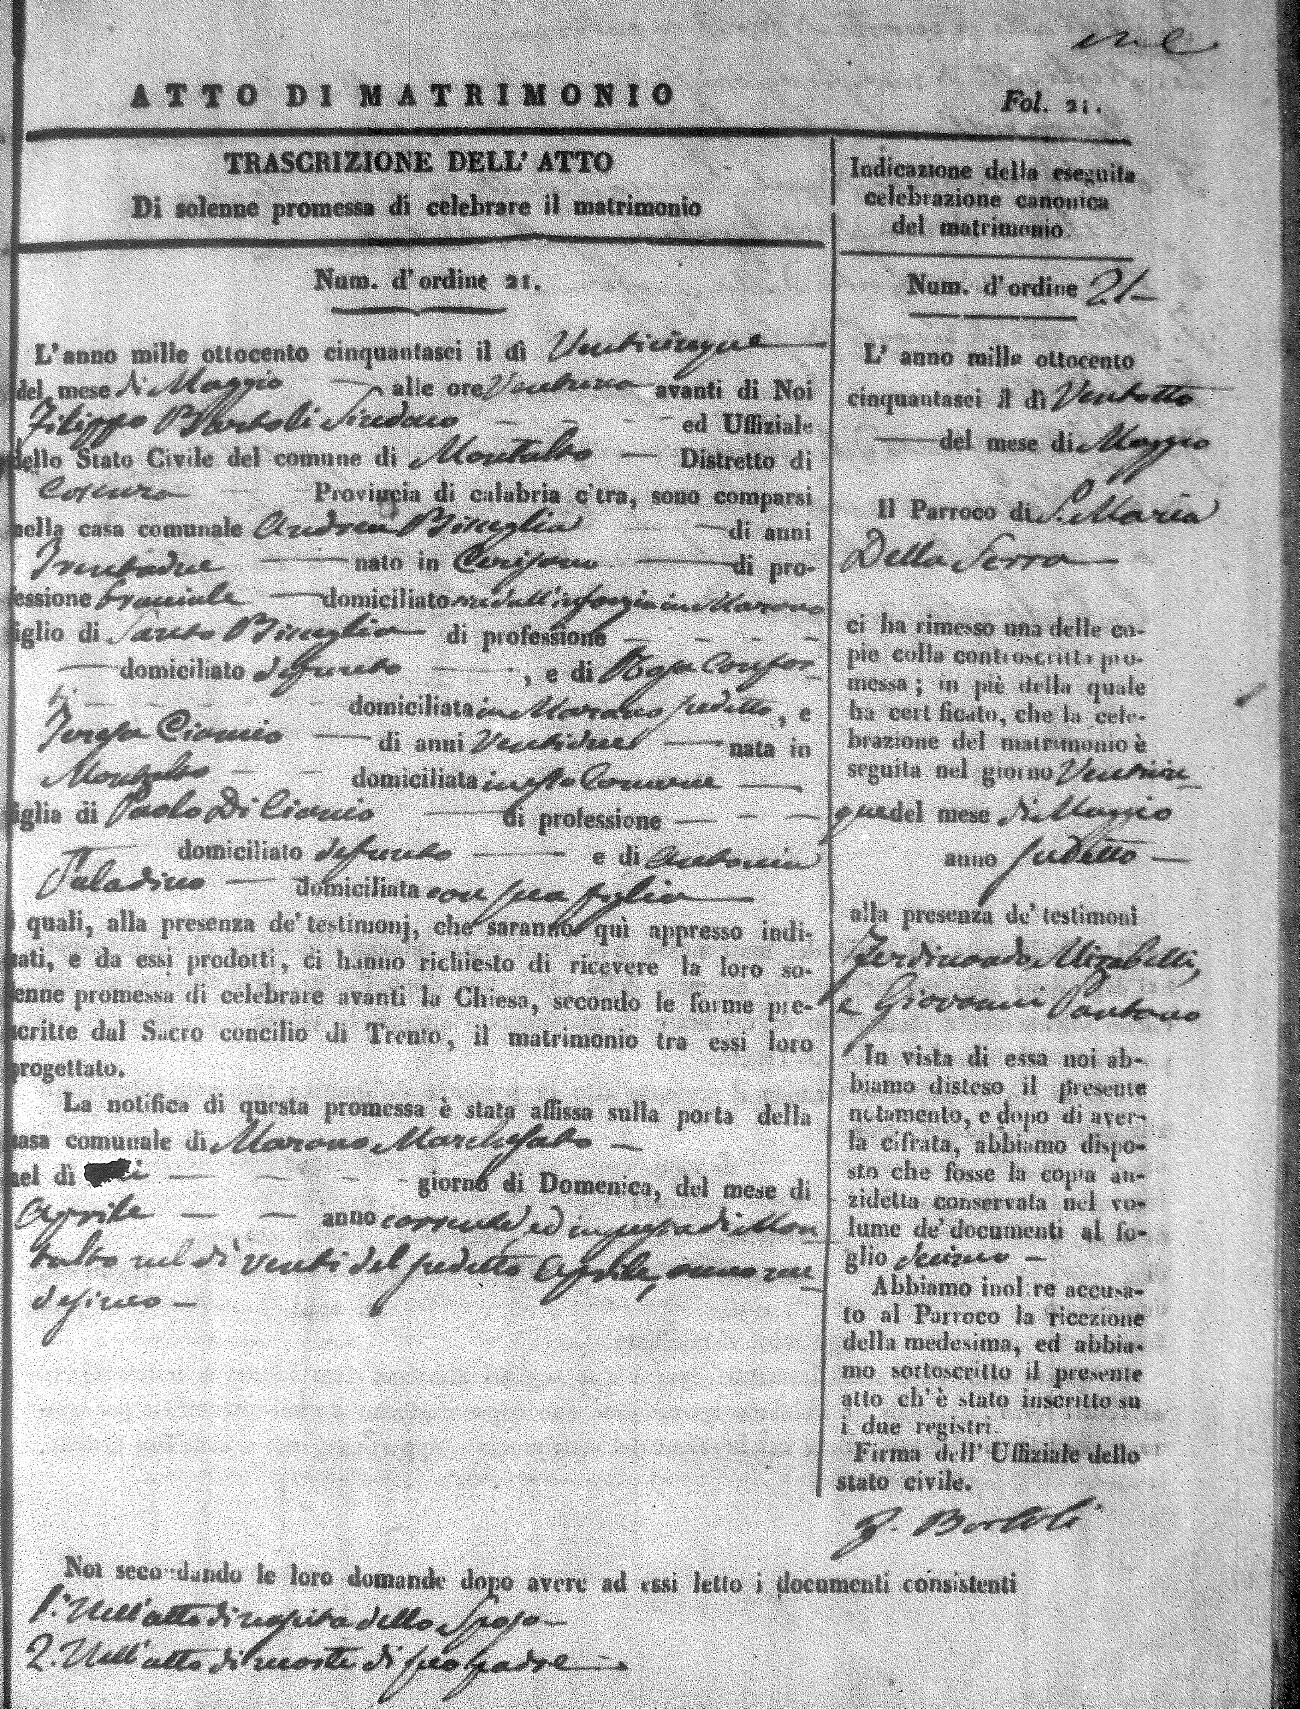 ATTO DI MATRIMONIO
Fol. 21.
TRASCRIZIONE DELL' ATTO
Di solenne promessa di celebrare il matrimonio
Num. d'ordine 21.
L'anno mille ottocento cinquantasei il dì Venticinque
del mese di Maggio alle ore Ventuno avanti di Noi
Filippo Bartoli Sindaco ed Uffiziale
dello Stato Civile del comune di Montalto Distretto di
Cosenza Provincia di calabria c'tra, sono comparsi
nella casa comunale Andrea Binuglia di anni
Trentadue nato in Cerisano di pro-
essione domiciliato in Marano
iglio di Santo Binuglia di professione
domiciliato defunto , e di Rosa Confor
ti domiciliata in Marano predetto, e
Teresa Cianrio di anni Ventidue nata in
Montalto domiciliata in q.sto Comune
iglia di Paolo Di Cianrio di professione
domiciliato defunto e di Antonia
Paladino domiciliata con sua figlia
i quali, alla presenza de' testimonj, che saranno quì appresso indi-
cati, e da essi prodotti, ci hanno richiesto di ricevere la loro so-
enne promessa di celebrare avanti la Chiesa, secondo le forme pre-
scritte dal Sacro concilio di Trento, il matrimonio tra essi loro
progettato.
La notifica di questa promessa è stata affissa sulla porta della
casa comunale di Marano Marchesato
nel dì giorno di Domenica, del mese di
Aprile anno corrente, ed in questa di Mon
talto nel dì venti del predetto Aprile, anno me
desimo
Indicazione della eseguita
celebrazione canonica
del matrimonio
Num. d'ordine 21
L' anno mille ottocento
cinquantasei il dì Ventotto
del mese di Maggio
Il Parroco di S. Maria
Della Serra
ci ha rimesso una delle co-
pie colla controscritta pro-
messa; in piè della quale
ha cert ficato, che la cele-
brazione del matrimonio è
seguita nel giorno Venticin
que del mese di Maggio
anno predetto
alla presenza de' testimoni
Ferdinando Mirabelli,
e Giovanni Pantano
In vista di essa noi ab-
biamo disteso il presente
notamento, e dopo di aver-
la cifrata, abbiamo dispo-
sto che fosse la copia an-
zidetta conservata nel vo-
lume de' documenti al fo-
glio decimo
Abbiamo inol re accusa-
to al Parroco la ricezione
della medesima, ed abbia-
mo sottoscritto il presente
atto ch' è stato inscritto su
i due registri.
Firma dell' Uffiziale dello
stato civile.
F. Bartoli
Noi secondando le loro domande dopo avere ad essi letto i documenti consistenti
1. Nell'atto di nascita dello Sposo
2. Nell'atto di morte di suo padre